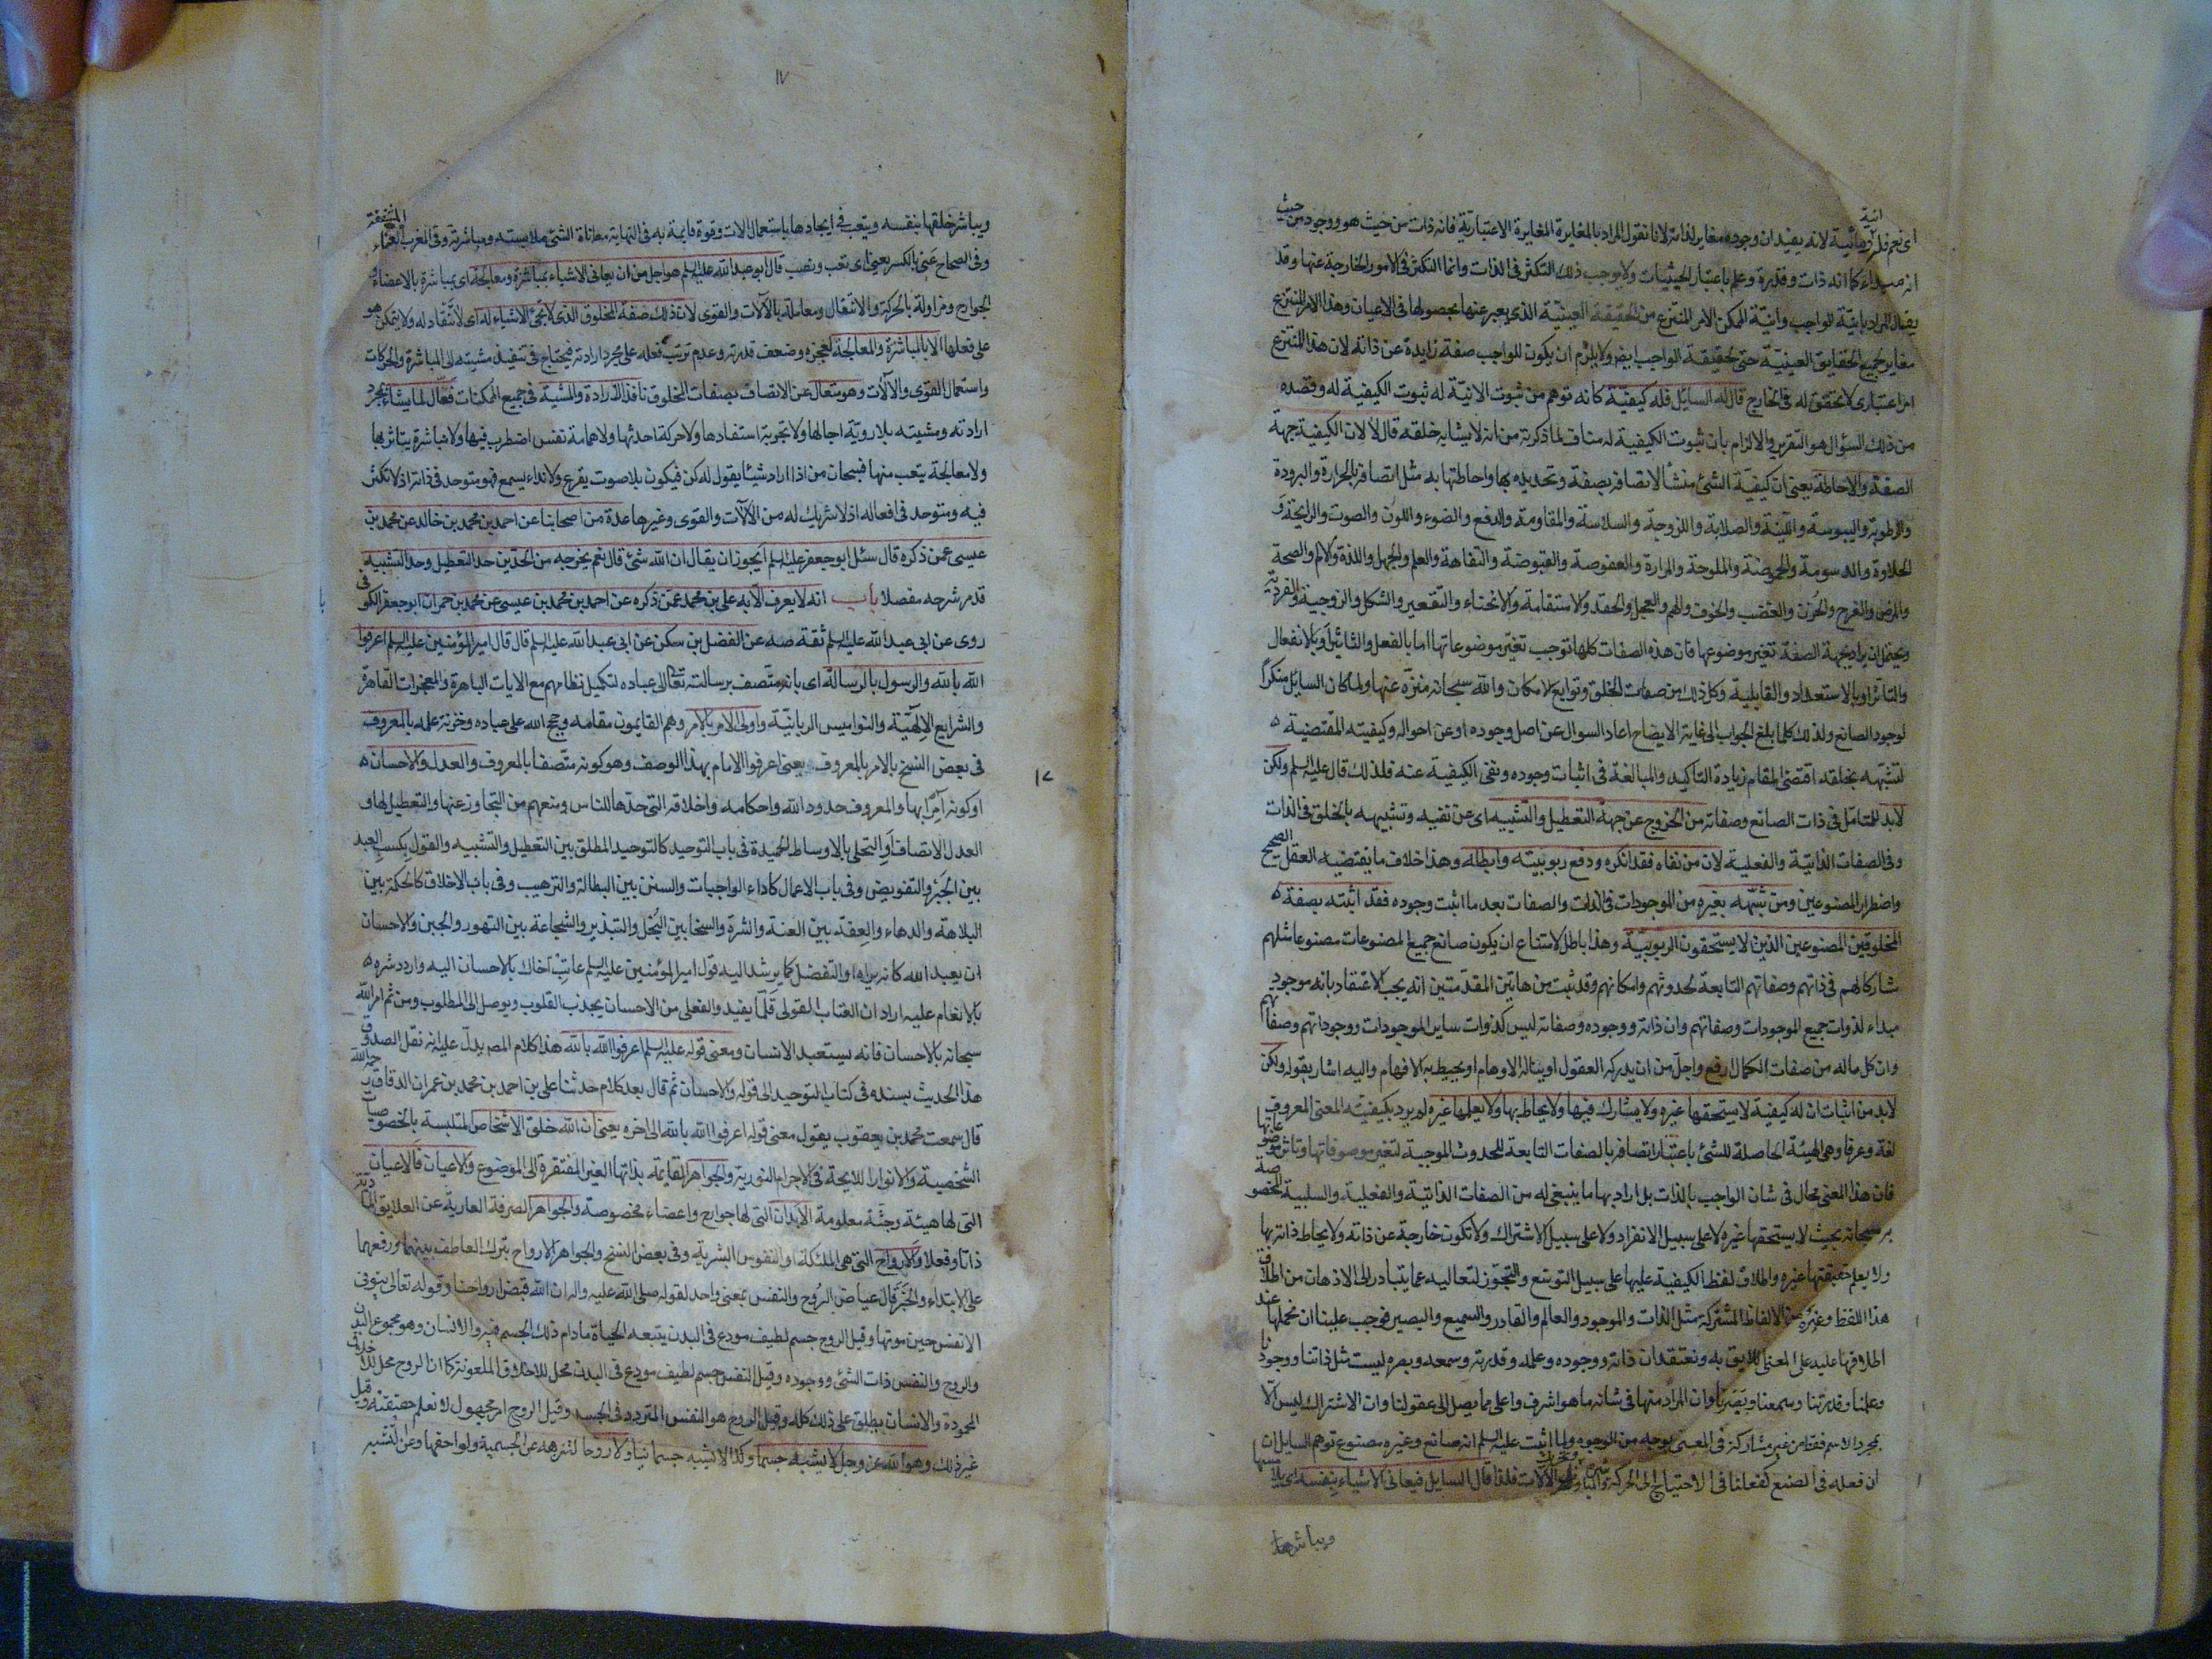 اى نعم فله انية ومائية لانه يفيد ان وجوده مغاير لذاته لانا نقول المراد بالمغايرة المغايرة الاعتبارية فانه ذات من حيث هو ووجود من حيث
انه مبداء كما انه ذات وقدرة وعلم باعتبار الحيثيات ولا يوجب ذلك التكثر فى الذات وانما التكثر فى الامور الخارجة عنها وقد
يقال المراد بانية الواجب وانية الممكن الامر المنتزع من الحقيقة العينية الذى يعبر عنها بحصولها فى الاعيان وهذا الامر المنتزع
مغاير لجميع الحقايق العينية حتى لحقيقة الواجب ايض ولا يلزم ان يكون للواجب صفة زايدة عن ذاته لان هذا المنتزع
امر اعتبارى لا تحقق له فى الخارج قال له السايل فله كيفية كانه توهم من ثبوت الانية له ثبوت الكيفية له وقصده
من ذلك السؤال هو التقرير والالزام بان ثبوت الكيفية له مناف لما ذكرته من انه لا يشابه خلقه قال لا لان الكيفية جهة
الصفة والاحاطة يعنى ان كيفية الشئ منشأ لاتصافه بصفة وتحديده بها واحاطتها به مثل اتصافه بالحرارة والبرودة
والرطوبة واليبوسة واللينة والصلابة واللزوجة والسلاسة والمقاومة والدفع والضوء واللون والصوت والرايحة و
الحلاوة والدسومة والحموضة والملوحة والمرارة والعفوصة والقبوضة والتفاهة والعلم والجهل واللذة والالم والصحة
والمرض والفرح والحزن والغضب والخوف والهم والخجل والحقد والاستقامة والانحناء والتقعير والشكل والزوجية والفردية
ويحتمل ان يراد بجهة الصفة تغير موضوعها فان هذه الصفات كلها توجب تغير موضوعاتها اما بالفعل والتاثير او بالانفعال
والتاثر او بالاستعداد والقابلية وكل ذلك من صفات الخلق وتوابع الامكان والله سبحانه منزه عنها ولما كان السائل منكرا
لوجود الصانع ولذلك كلما بلغ الجواب الى غاية الايضاح اعاد السوال عن اصل وجوده او عن احواله وكيفيته المقتضية
لتشبهه بخلقه اقتضى المقام زيادة التاكيد والمبالغة فى اثبات وجوده ونفى الكيفية عنه فلذلك قال عليه السلم ولكن
لا بد للمتامل فى ذات الصانع وصفاته من الخروج عن جهة التعطيل والتشبيه اى عن نفيه وتشبيهه بالخلق فى الذات
وفى الصفات الذاتية والفعلية لان من نفاه فقد انكره ودفع ربوبيته وابطله وهذا خلاف ما يقتضيه العقل الصحيح
واضطرار المصنوعين ومن شبهه بغيره من الموجودات فى الذات والصفات بعد ما اثبت وجوده فقد اثبته بصفة
المخلوقين المصنوعين الذين لا يستحقون الربوبية وهذا باطل لامتناع ان يكون صانع جميع المصنوعات مصنوعا مثلهم
مشاركا لهم فى ذاتهم وصفاتهم التابعة لحدوثهم وامكانهم وقد ثبت من هاتين المقدمتين انه يجب الاعتقاد بانه موجود
مبداء لذوات جميع الموجودات وصفاتهم وان ذاته ووجوده وصفاته ليس كذوات ساير الموجودات ووجوداتهم وصفاتهم
وان كل ماله من صفات الكمال ارفع واجل من ان يدركه العقول او يناله الاوهام او يحيط به الافهام واليه اشار بقوله ولكن
لا بد من اثبات ان له كيفية لا يستحقها غيره ولا يشارك فيها ولا يحاط بها ولا يعلمها غيره لم يرد بكيفيته المعنى المعروف
لغة وعرفا وهى الهيئة الحاصلة للشئ باعتبار اتصافه بالصفات التابعة للحدوث الموجبة لتغير موصوفاتها وتاثر موضوعاتها
فان هذا المعنى محال فى شان الواجب بالذات بل اراد بها ما ينبغى له من الصفات الذاتية والفعلية والسلبية المخصوصة
به سبحانه بحيث لا يستحقها غيره لا على سبيل الانفراد ولا على سبيل الاشتراك ولا تكون خارجة عن ذاته ولا يحاط ذاته بها
ولا يعلم حقيقتها غيره واطلاق لفظ الكيفية عليها على سبيل التوسع والتجوز لتعاليه عما يتبادر الى الاذهان من اطلاق
هذا اللفظ وغيره من الالفاظ المشتركة مثل الذات والموجود والعالم والقادر والسميع والبصير فوجب علينا ان نحملها عند
اطلاقها عليه على المعنى اللايق به ونعتقد ان ذاته ووجوده وعلمه وقدرته وسمعه وبصره ليست مثل ذاتنا ووجودنا
وعلمنا وقدرتنا وسمعنا وبصرنا وان المراد منها فى شانه ما هو اشرف واعلى مما يصل الى عقولنا وان الاشتراك ليس الا
بمجرد الاسم فقط من غير مشاركة فى المعنى بوجه من الوجوه ولما اثبت عليه السلم انه صانع وغيره مصنوع توهم السايل ان
ان فعله فى الصنع كفعلنا فى الاحتياج الى الحركة والمباشرة وتحريك الالات فلذا قال السايل فيعانى الاشياء بنفسه اى يلامسها
ويباشرها
١٧
ويباشر خلقها بنفسه ويتعب فى ايجادها باستعمال الات وقوة قايمة به فى النهاية معاناة الشئ ملابسته ومباشرته وفى المغرب العناء المشقة
وفى الصحاح عنى بالكسر يعنى اى تعب ونصب قال ابو عبد الله عليه السلم هو اجل من ان يعانى الاشياء بمباشرة ومعالجة اى بمباشرة بالاعضاء و
الجوارح ومزاولة بالحركة والانتقال ومعاملة بالآلات والقوى لان ذلك صفة المخلوق الذى لا تجئ الاشياء له اى لا تنقاد له ولا يتمكن هو
على فعلها الا بالمباشرة والمعالجة لعجزه وضعف قدرته وعدم ترتب فعله على مجرد ارادته فيحتاج فى تنفيذ مشيته الى المباشرة والحركات
واستعمال القوى والآلات وهو متعال عن الاتصاف بصفات المخلوق نافذ الارادة والمشية فى جميع الممكنات فعال لما يشاء بمجرد
ارادته ومشيته بلا روية اجالها ولا تجربة استفادها ولا حركة احدثها ولا همامة نفس اضطرب فيها ولا مباشرة يتاثر بها
ولا معالجة يتعب منها فسبحان من اذا اراد شيئا يقول له كن فيكون بلا صوت يقرع ولا نداء يسمع فهو متوحد فى ذاته اذ لا تكثر
فيه ومتوحد فى افعاله اذ لا شريك له من الآلات والقوى وغيرها عدة من اصحابنا عن احمد بن محمد بن خالد عن محمد بن
عيسى عمن ذكره قال سئل ابو جعفر عليه السلم ايجوز ان يقال ان الله شئ قال نعم يخرجه من الحدين حد التعطيل وحد التشبيه
قد مر شرحه مفصلا باب انه لا يعرف الا به على بن محمد عمن ذكره عن احمد بن محمد بن عيسى عن محمد بن حمران ابو جعفر الكوفى
روى عن ابى عبد الله عليه السلم ثقة صه عن الفضل بن سكن عن ابى عبد الله عليه السلم قال قال امير المؤمنين عليه السلم اعرفوا
الله بالله والرسول بالرسالة اى بانه متصف برسالته تعالى الى عباده لتكميل نظامهم مع الايات الباهرة والمعجزات القاهرة
والشرايع الالهية والنواميس الربانية واولى الامر بالامر وهم القايمون مقامه وحجج الله على عباده وخزنة علمه بالمعروف
فى بعض النسخ بالامر بالمعروف يعنى اعرفوا الامام بهذا الوصف وهو كونه متصفا بالمعروف والعدل والاحسان
او كونه آمرا بها والمعروف حدود الله واحكامه واخلاقه التى حدها للناس ومنعهم من التجاوز عنها والتعطيل لها و
العدل الاتصاف او التحلى بالاوساط الحميدة فى باب التوحيد كالتوحيد المطلق بين التعطيل والتشبيه والقول بكسب العبد
بين الجبر والتفويض وفى باب الاعمال كاداء الواجبات والسنن بين البطالة والترهب وفى باب الاخلاق كالحكمة بين
البلاهة والدهاء والعفة بين العنة والشره والسخا بين البخل والتبذير والشجاعة بين التهور والجبن والاحسان
ان يعبد الله كانه يراه او التفضل كما يرشد اليه قول امير المؤمنين عليه السلم عاتب اخاك بالاحسان اليه واردد شره
بالانعام عليه اراد ان العتاب القولى قلما يفيد والفعلى من الاحسان يجذب القلوب ويوصل الى المطلوب ومن ثم امر الله
سبحانه بالاحسان فانه يستعبد الانسان ومعنى قوله عليه السلم اعرفوا الله بالله هذا كلام المص يدل عليه انه نقل الصدوق رحمه الله
هذا الحديث بسنده فى كتاب التوحيد الى قوله والاحسان ثم قال بعد كلام حدثنا على بن احمد بن محمد بن عمران الدقاق
قال سمعت محمد بن يعقوب يقول معنى قوله اعرفوا الله بالله الى اخره يعنى ان الله خلق الاشخاص المتلبسة بالخصوصيات
الشخصية والانوار اللايحة فى الاجرام النورية والجواهر القايمة بذاتها الغير المفتقرة الى الموضوع والاعيان فالاعيان
التى لها هيئة وجثة معلومة الابدان التى لها جوارح واعضاء مخصوصة والجواهر الصرفة العارية عن العلايق المادية
ذاتا وفعلا والارواح التى هى الملئكة او النفوس البشرية وفى بعض النسخ والجواهر الارواح بترك العاطف بينهما ورفعهما
على الابتداء والخبر قال عياض الروح والنفس بمعنى واحد لقوله صلى الله عليه واله ان الله قبض ارواحنا وقوله تعالى يتوفى
الانفس حين موتها وقيل الروح جسم لطيف مودع فى البدن يتبعه الحياة مادام ذلك الجسم فيه والانسان وهو مجموع البدن
والروح والنفس ذات الشئ ووجوده وقيل النفس جسم لطيف مودع فى البدن محل للاخلاق الملعونة كما ان الروح محل للاخلاق
المحمودة والانسان يطلق على ذلك كله وقيل الروح هو النفس المتردد فى الجسد وقيل الروح امر مجهول لا نعلم حقيقته وقيل
غير ذلك وهو الله عز وجل لا يشبه جسما وكذا لا يشبه جسمانيا ولا روحا لتنزهه عن الجسمية ولواحقها وعن التشبه